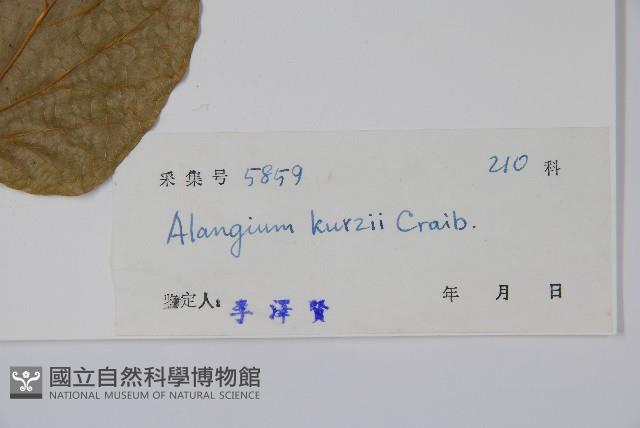 采集号 5859 210 科
Alangium kurzii Craib.
鉴定人: 李泽贤 年 月 日
國立自然科學博物館
NATIONAL MUSEUM OF NATURAL SCIENCE